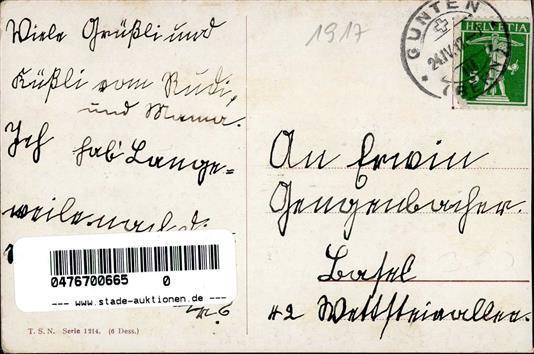 Viele Grüßli und
Küßli vom Rudi,
und Mama.
Ich hab' Lange=
weile nach di
1917
GUNTEN
24.IV.17
(BERN)
HELVETIA
5
An Erwin
Gengenbacher.
Basel
42 Wettsteinallee.
0476700665 0
--- www.stade-auktionen.de ---
T. S. N. Serie 1214. (6 Dess.)